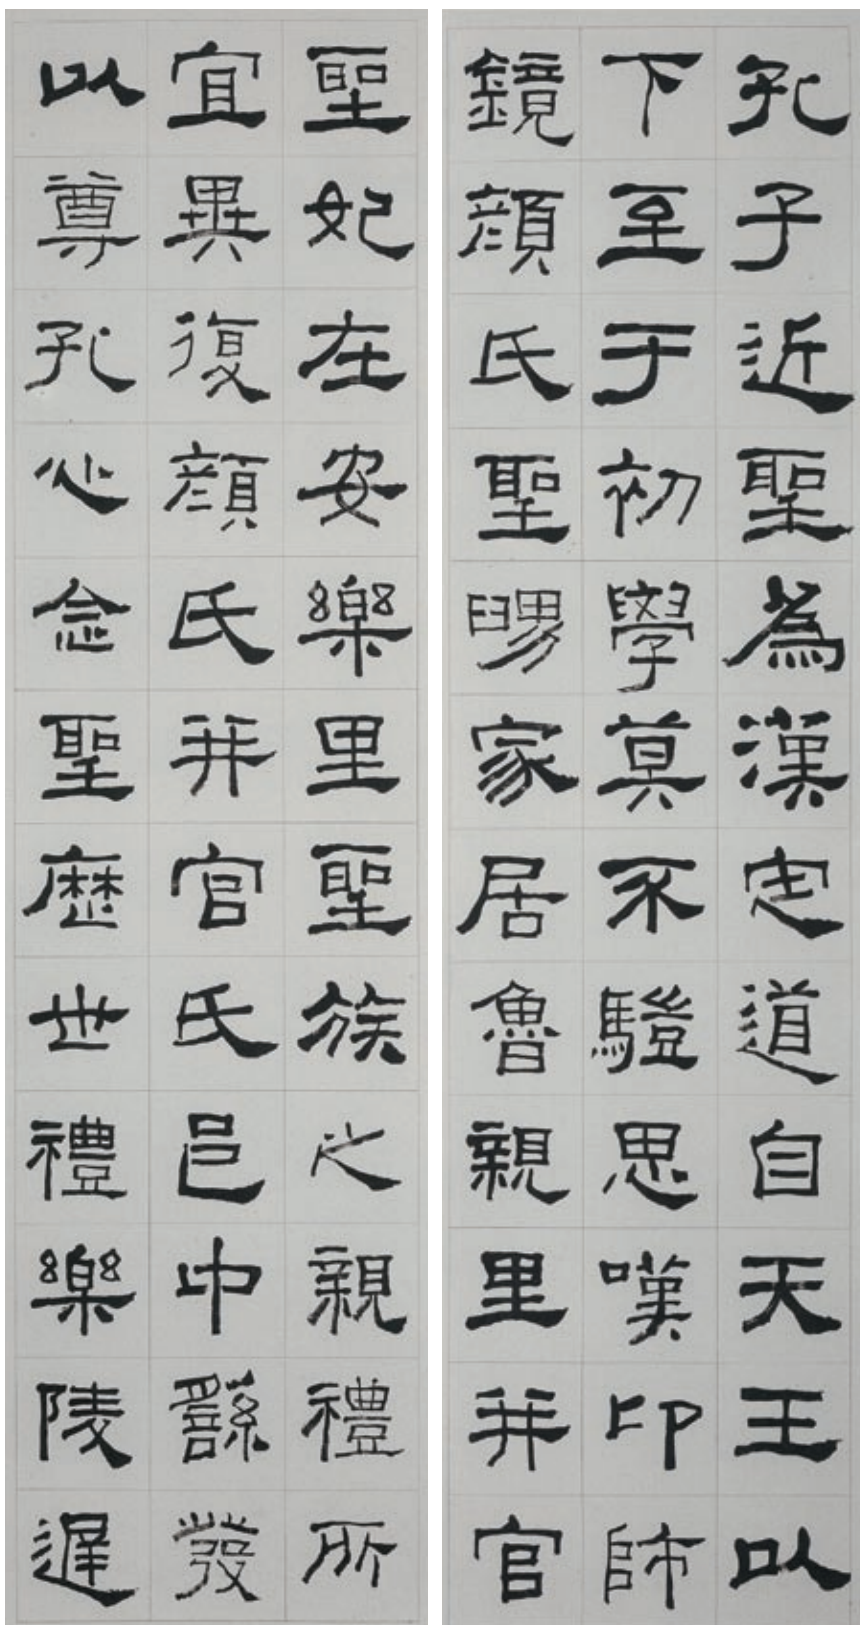 孔子近聖為漢定道自天王以
下至于初學莫不驥思嘆卬師
鏡顏氏聖舅家居魯親里并官
聖妃在安樂里聖族之親禮所
宜異復顏氏并官氏邑中繇發
以尊孔心念聖歷世禮樂陵遲